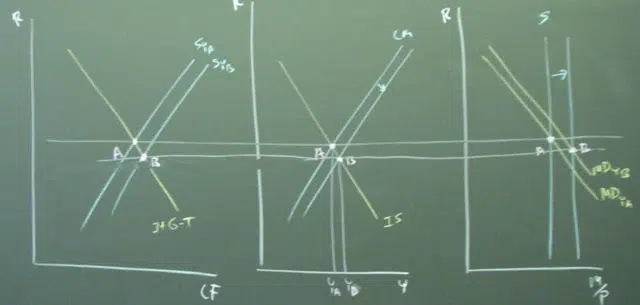 R
SYA
SYB
A
B
I+G-T
CF
R
LM
A
B
IS
YA
YB
Y
R
S
A
B
MDYB
MDYA
M/P